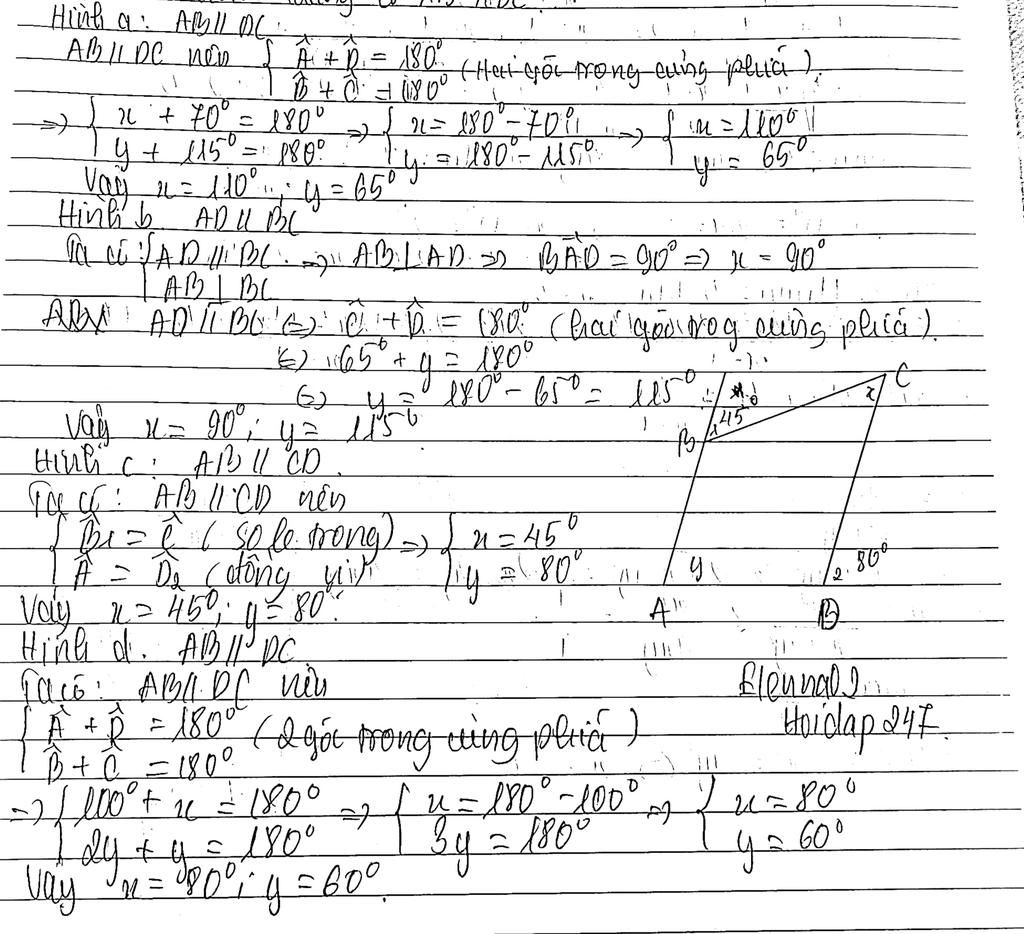 Hình a: AB // DC.
AB // DC nên { Â + D̂ = 180° (Hai góc trong cùng phía).
B̂ + Ĉ = 180°
=> { x + 70° = 180° => { x = 180° - 70° => { x = 110°
y + 115° = 180° y = 180° - 115° y = 65°
Vậy x = 110°; y = 65°
Hình b AD // BC
Ta có: { AD // BC => AB ⊥ AD => BÂD = 90° => x = 90°
AB ⊥ BC
AD // BC <=> Ĉ + D̂ = 180° (hai góc trog cùng phía).
<=> 65° + y = 180°
<=> y = 180° - 65° = 115°
Vậy x = 90°; y = 115°
Hình c: AB // CD.
Ta có: AB // CD nên
{ B̂1 = Ĉ (so le trong) => { x = 45°
Â = D̂2 (đồng vị) y = 80°
Vậy x = 45°; y = 80°.
C
x
1 45°
B
y
2 80°
A
D
Hình d. AB // DC
Ta có: AB // DC nên
{ Â + D̂ = 180° (2 góc trong cùng phía)
B̂ + Ĉ = 180°
Hoidap247.
=> { 100° + x = 180° => { x = 180° - 100° => { x = 80°
2y + y = 180° 3y = 180° y = 60°
Vậy x = 80°; y = 60°.